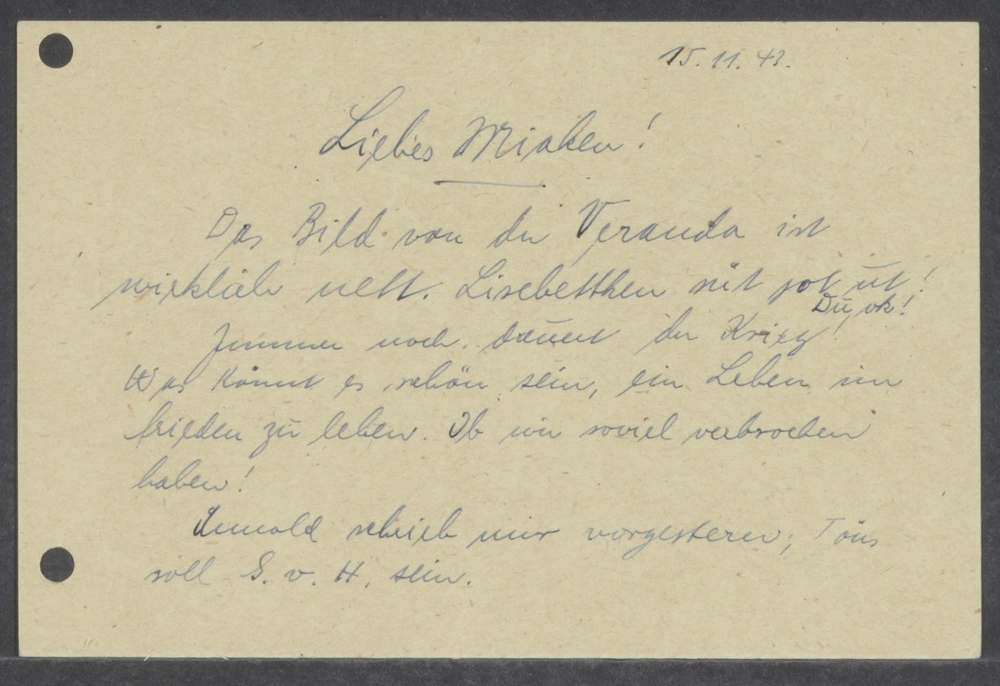 15. 11. 43.
Liebes Miaken!
Das Bild von der Veranda ist
wirklich nett. Lisebettken süt jot ut!
Du ok!
Immer noch dauert der Krieg!
Was könnt es schön sein, ein Leben im
Frieden zu leben. Ob wir soviel verbrochen
haben!
schrieb mir vorgestern, Töns
soll S. v. H. sein.